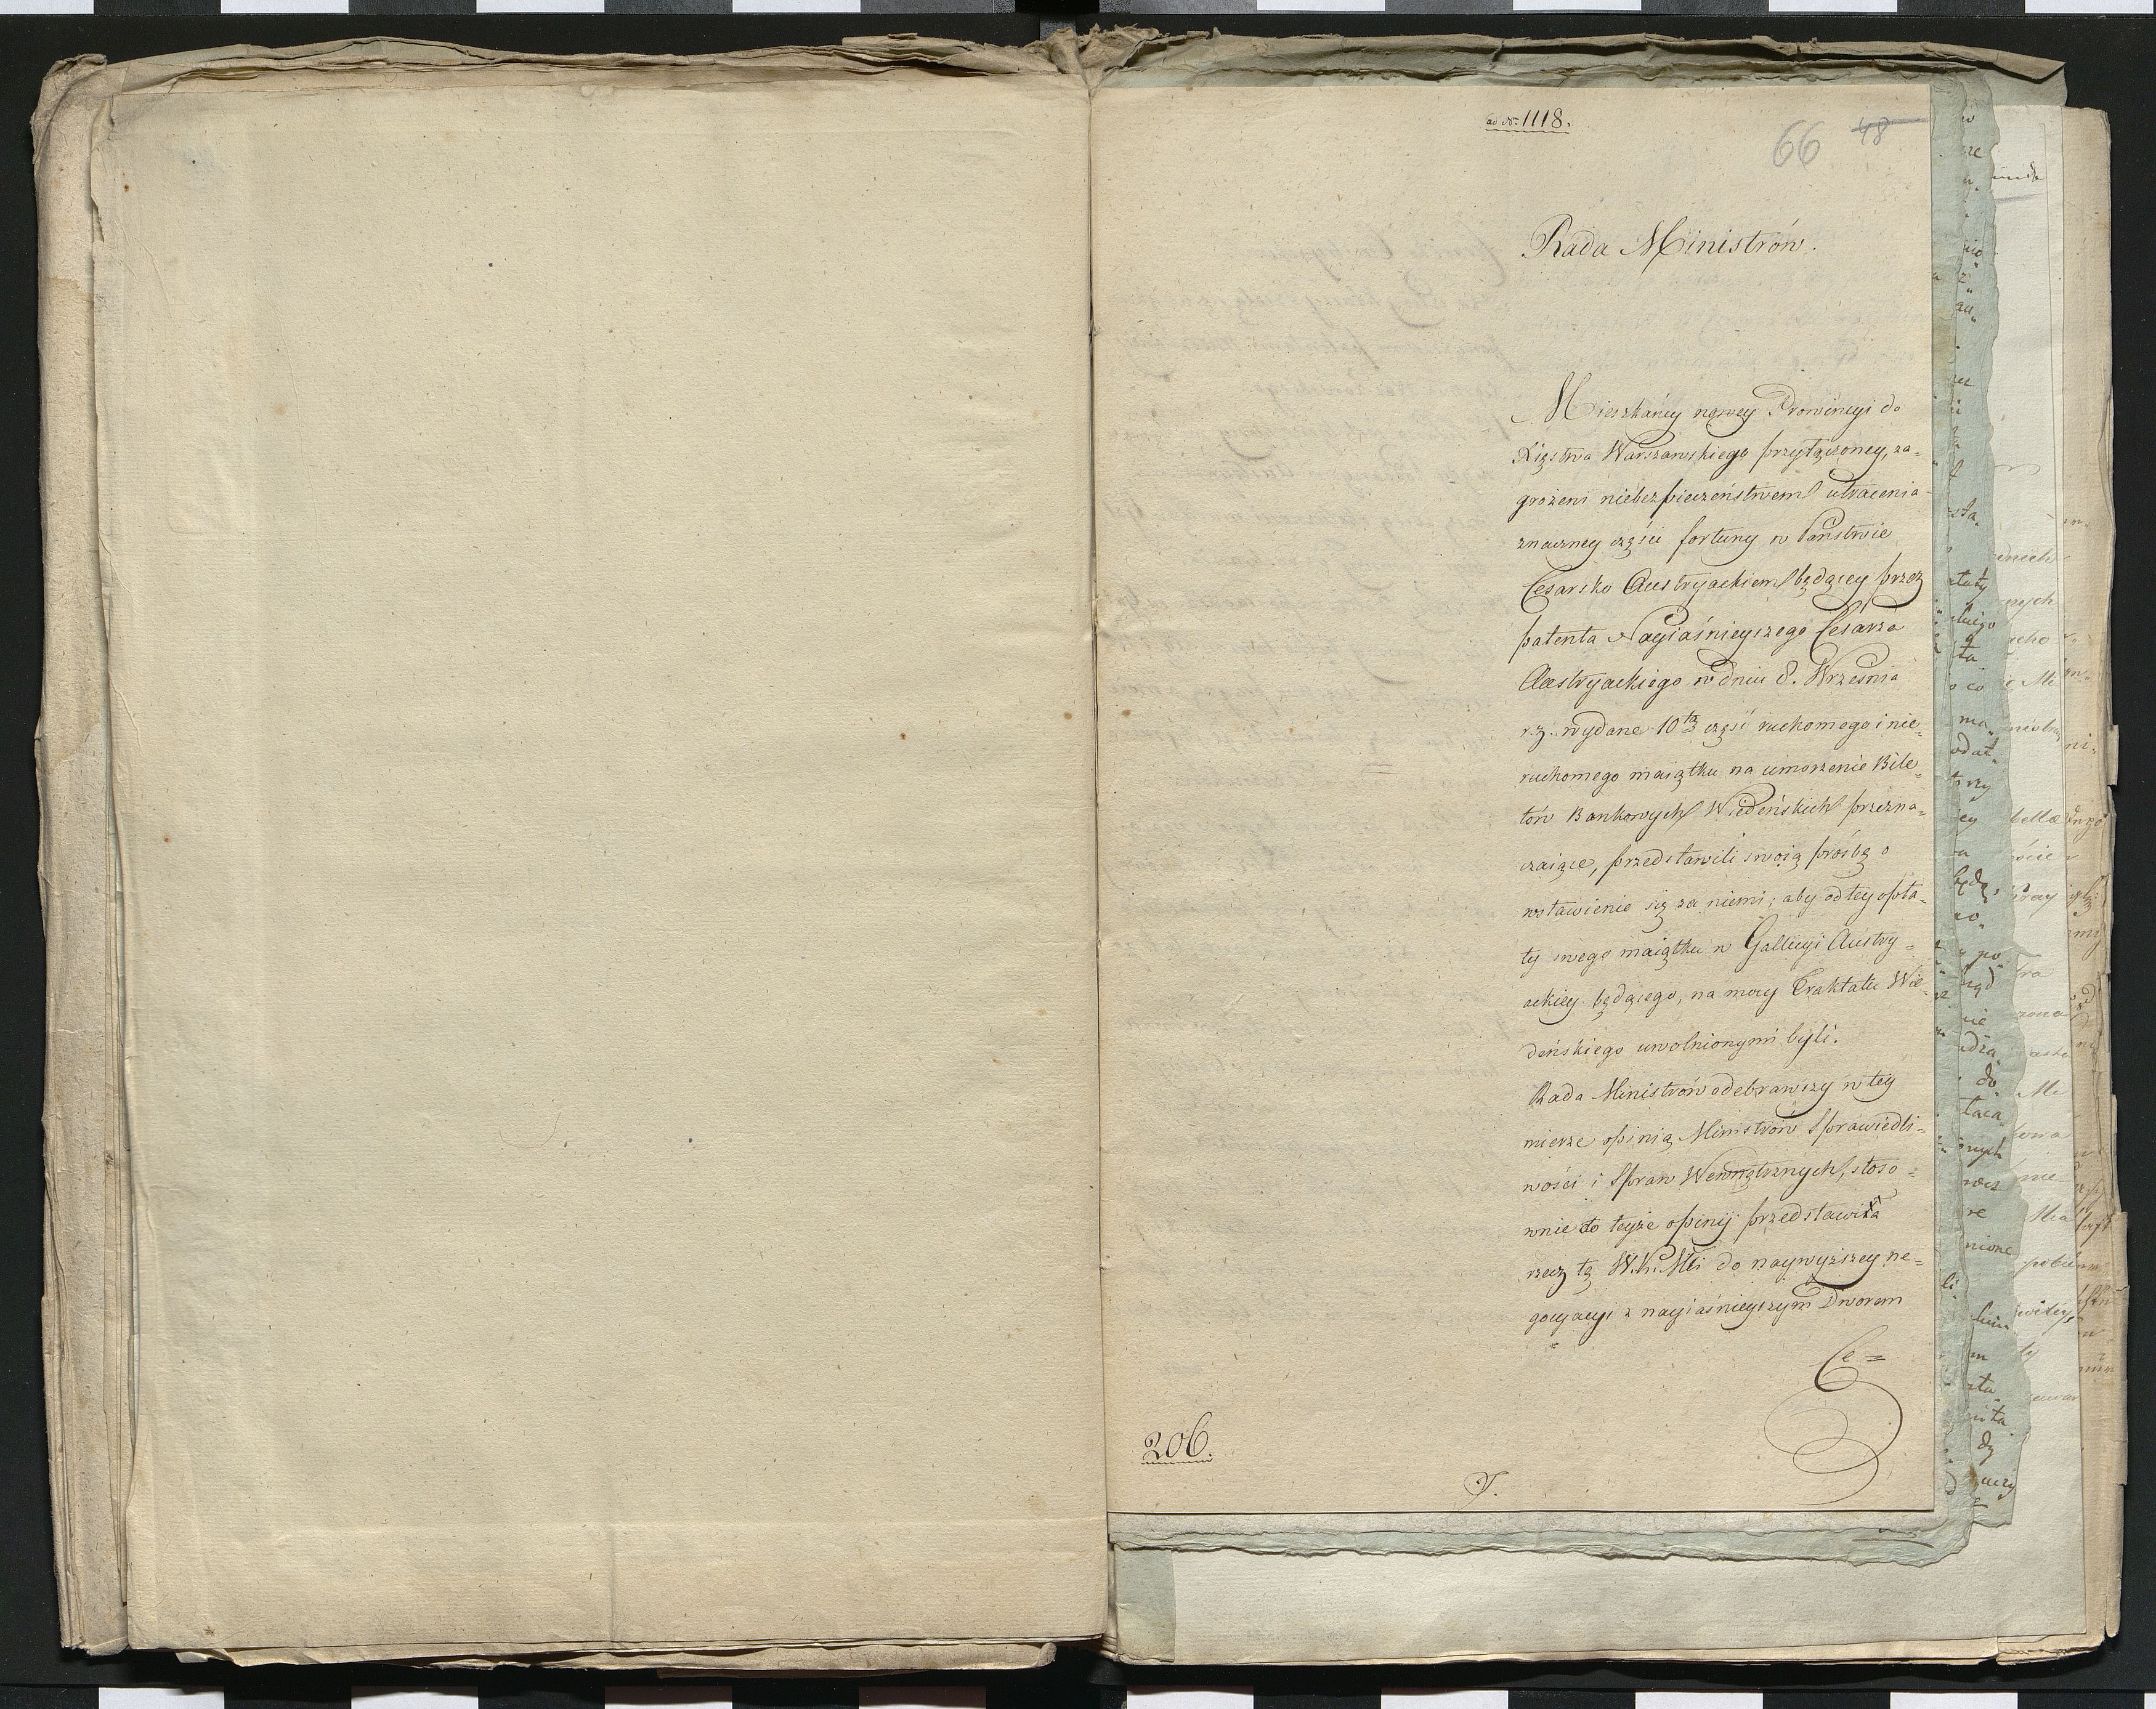 ad No. 1118.
66 48
Rada Ministrów.
Mieszkańcy nowey Prowincyi do
Xięstwa Warszawskiego przyłączoney, za=
grożeni niebezpieczeństwem utracenia
znaczney części fortuny w Państwie
Cesarsko Austryackiem będącey przez
patenta Nayiaśnieyszego Cesarza
Austryackiego w dniu 8. Września
r. z. wydane 10tą część ruchomego i nie=
ruchomego maiątku na umorzenie Bile=
tów Bankowych Wiedeńskich przezna=
czaiące, przedstawili swoią prośbę o
wstawienie się za niemi; aby od tey opła=
ty swego maiątku w Gallicyi Austry=
ackiey będącego, na mocy Traktatu Wie=
deńskiego uwolnionymi byli.
Rada Ministrów odebrawszy w tey
mierze opinią Ministrów Sprawiedli=
wości i Spraw Wewnętrznych, stoso=
wnie do teyże opinij przedstawiła
rzecz tę W. K. Mci do naywyższey ne=
gocyacyi z nayiaśnieyszym Dworem
Ce=
206.